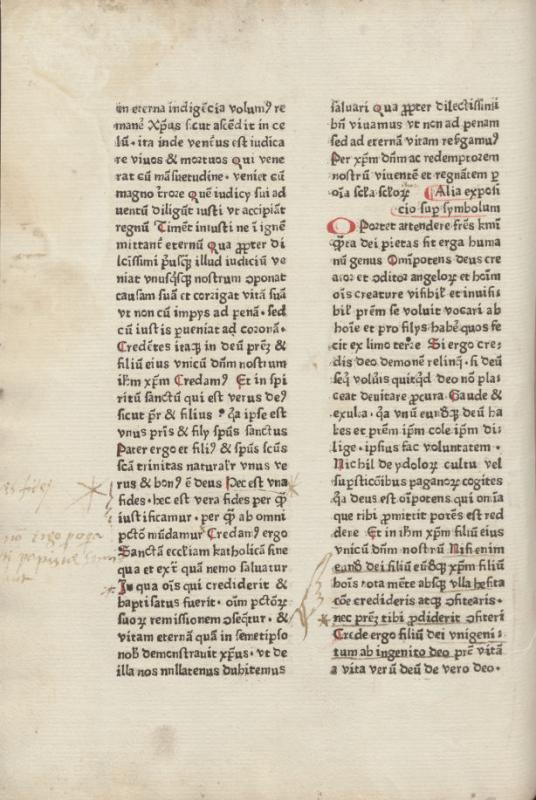 in eterna indigēcia volumꝰ re
manē Xp̄us sicut ascēdit in ce
lū · ita inde ventꝰus est iudica
re viuos & moꝛtuos Qui vene
rat cū māsuetudine · veniet cū
magno t̄roꝛe Quē iudicy sui ad
uentū diligūt iusti vt accipiāt
regnū Timēt iniusti ne ī ignē
mittant̄ eternū Qua ꝓpter di
lcissimi pꝰusqꝫ illud iudiciū ve
niat vnusqꝰsqꝫ nostrum ꝯponat
causam suā et coꝛrigat vitā suā
vt non cū impys ad penā · sed
cū iustis ꝑueniat ad coꝛonā ·
Credētes itaqꝫ in deū prēꝫ &
filiū eius vnicū dn̄m nostrum
ih̄m xp̄m Credamꝰ Et in spi
ritū sanctū qui est verus deꝰ
sicut pr̄ & filius · qꝛ ipse est
vnus pris & fily spūs sanctus
Pater ergo et filiꝰ & spūs scūs
scā trinitas naturalr̄ vnus ve
rus & bonꝰ ē deus Hec est vna
fides · hec est vera fides per quā
iustificamur · per quā ab omni
pctō mūdamur Credamꝰ ergo
Sanctā eccl̄iam katholicā sine
qua et extᵃ quā nemo saluatur
In qua oīs qui crediderit &
baptisatus fuerit · oīm pctōꝝ
suoꝝ remissionem ꝯseqꝛ̄ · &
vitam eternā quā in semetipso
nob̄ demonstrauit xp̄us · vt de
illa nos nullatenus dubitemus
saluari Qua ꝓpter dilectissimi
bn̄ viuamus vt non ad penam
sed ad eternā vitam resꝰgamꝰ
Per xp̄m dn̄m ac redemptoꝛem
nostrū viuentē et regnātem ꝑ
oīa scl̄a scl̄oꝝ Alia exposi
cio suꝑ symbolum
Opoꝛtet attendere fr̄es kmī
q̄nta dei pietas fit erga huma
nū genus Om̄ipotens deus cre
atoꝛ et ꝯditoꝛ angeloꝝ et hoīm
oīs creature visibil̄ et inuisi
bil̄ prēm se voluit vocari ab
hoīe et pro filys habeꝰ quos fe
cit ex limo terre Si ergo cre⸗
dis deo demonē relinqꝫ · si deū
seqꝰ volūis quitqͥd deo nō pla⸗
ceat deuitare ꝓcura Gaude &
exulta · qꝛ vnū eundꝫ deū ha
bes et prēm ipm̄ cole ipm̄ di⸗
lige · ipsius fac voluntatem ·
Nichil de ydoloꝝ cultu vel
suꝑsticōibus paganoꝝ cogites
qꝛ deus est oīpotens qui omīa
que tibi ꝓmittit potēs est red
dere Et in ih̄m xp̄m filiū eius
vnicū dn̄m nostrū Nisi enim
eundꝫ dei filiū eūdqꝫ xp̄m filiū
hoīs tota mēte absqꝫ vlla hesita
cōe credideris atqꝫ ꝯfitearis ·
nec prēꝫ tibi ꝓdiderit ꝯfiteri
Crede ergo filiū dei vnigeni⸗
tum ab ingenito deo prē vitā
a vita verū deū de vero deo ·